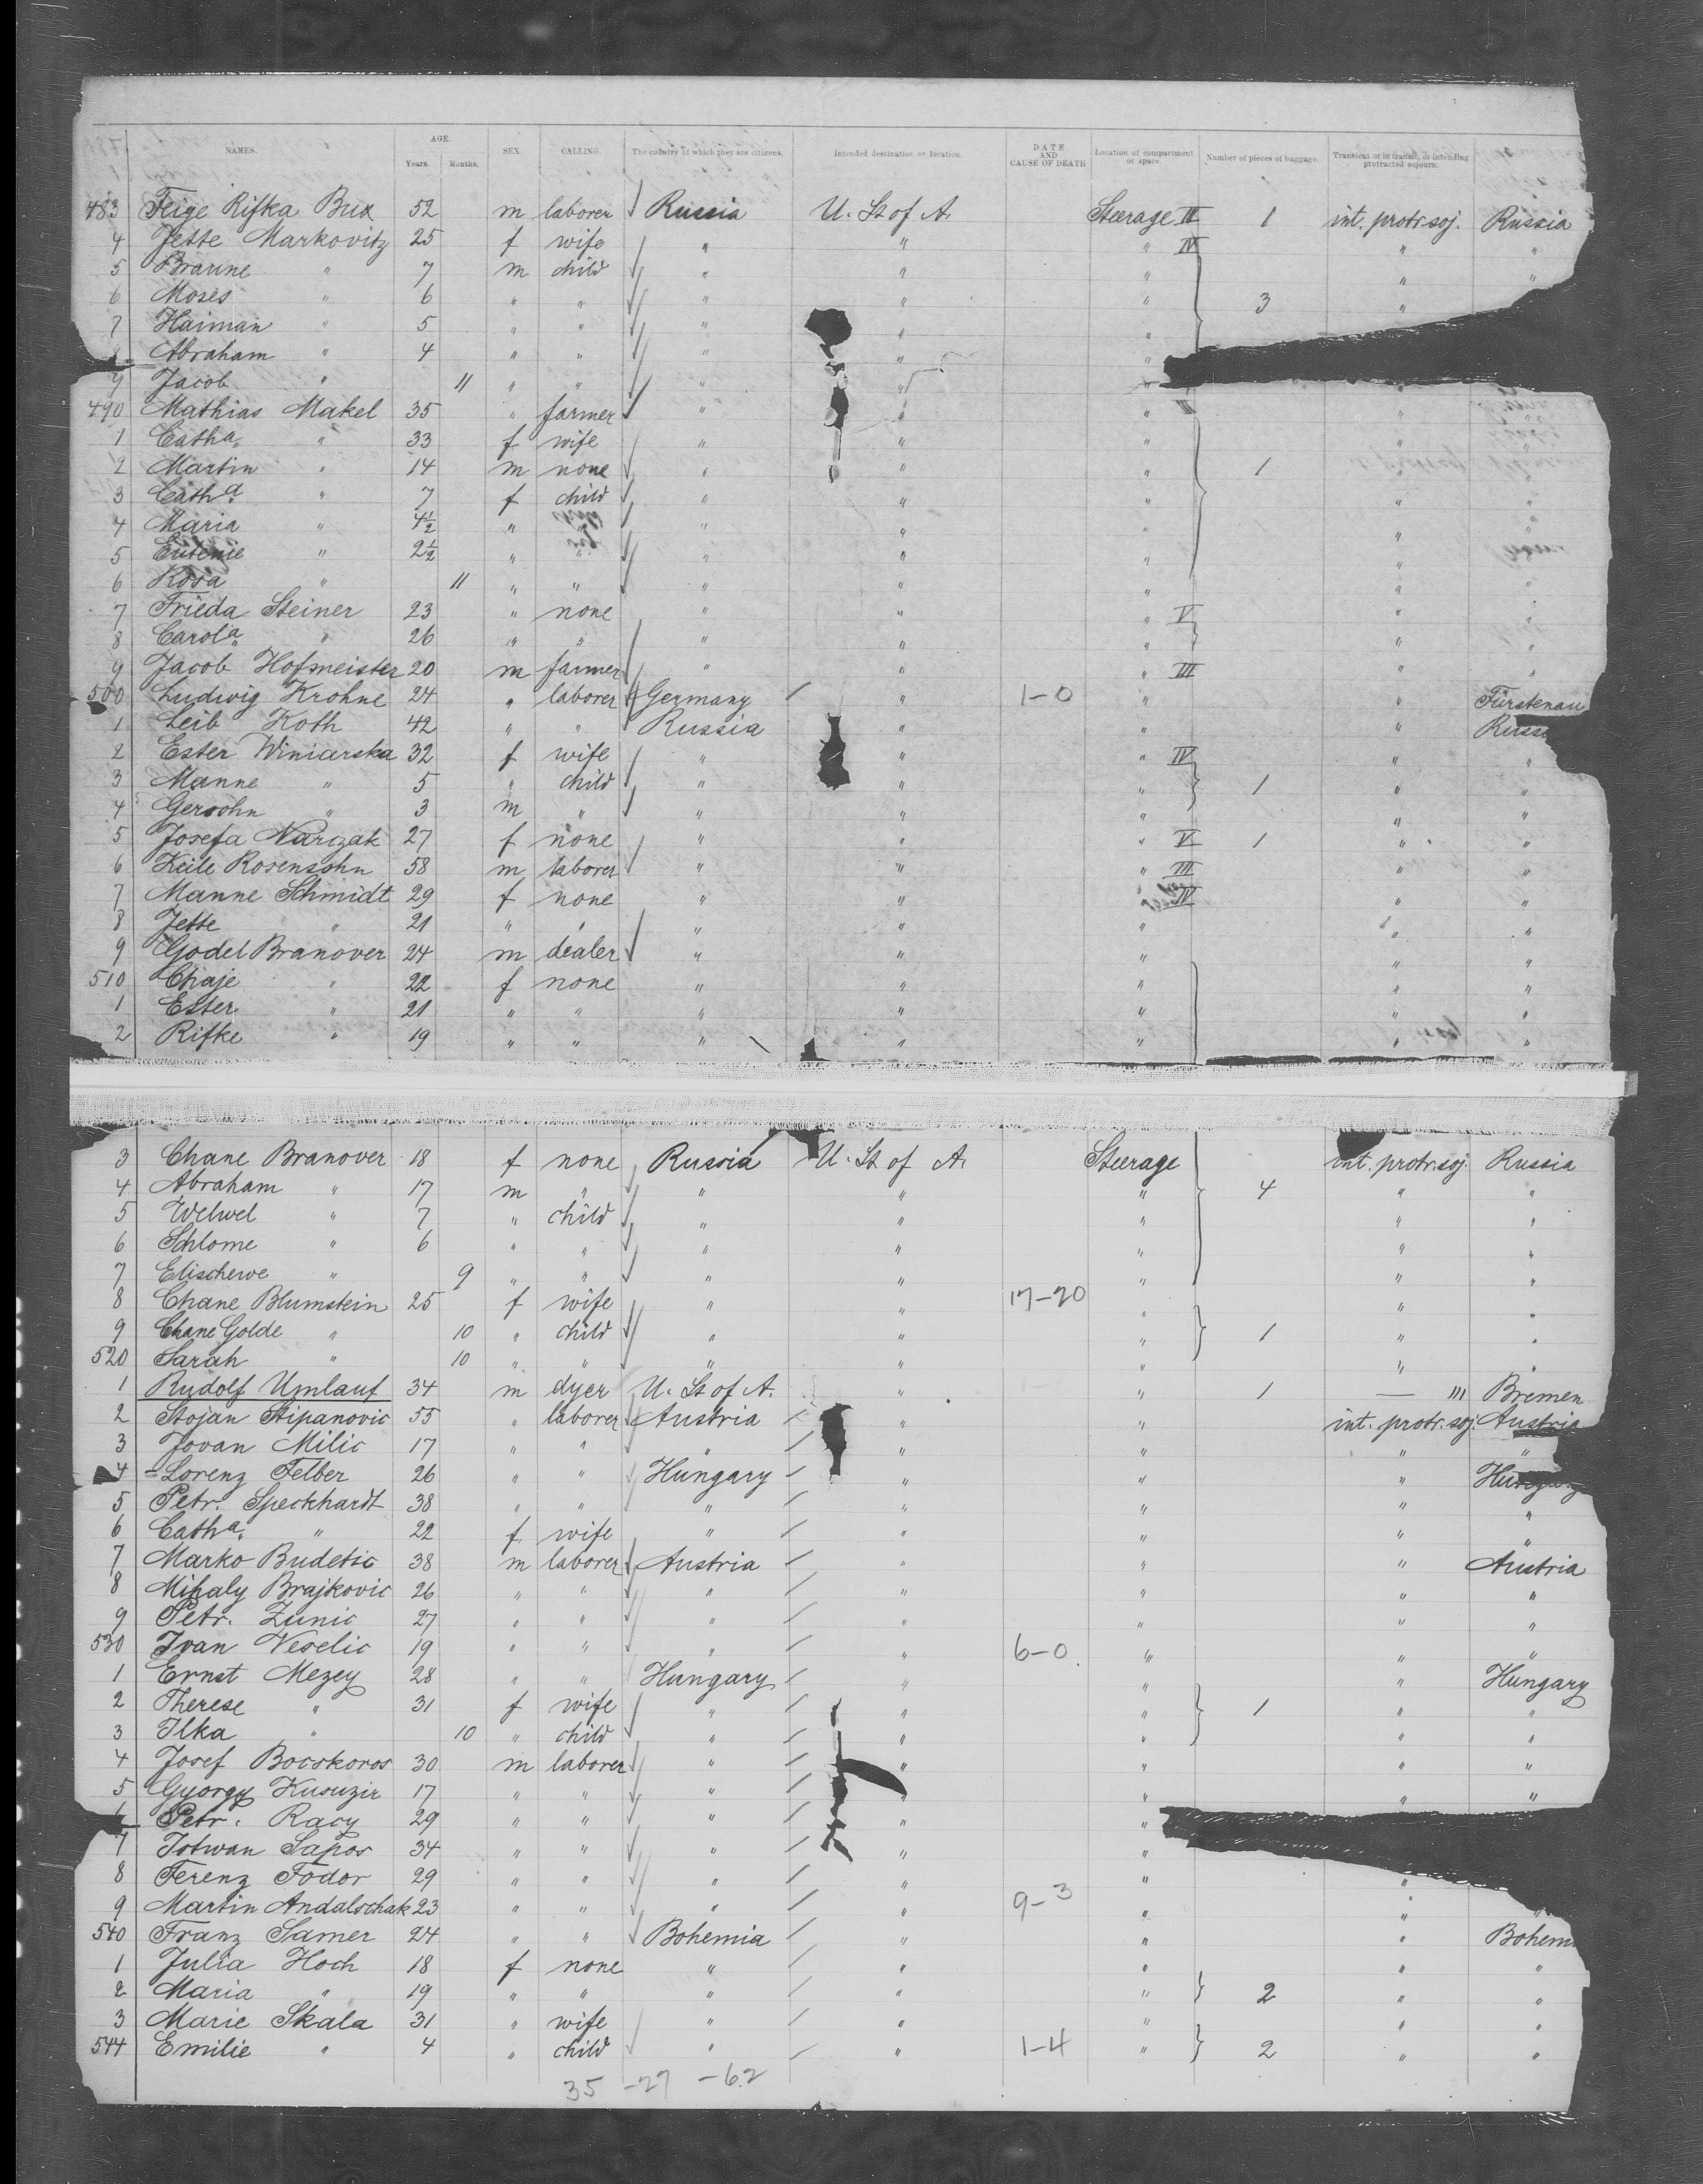 NAMES. AGE. Years. Months. SEX. CALLING. The country of which they are citizens. Intended destination or location. DATE AND CAUSE OF DEATH Location of compartment or space. Number of pieces of baggage. Transient or in transit, or intending protracted sojourn.
483 Feige Rifka Bux 52 m laborer Russia U. St of A. Steerage III 1 int. protr. soj. Russia
4 Jette Markovitz 25 f wife " " " IV " "
5 Braune " 7 m child " " " " "
6 Moses " 6 " " " " " 3 "
7 Haiman " 5 " " " " "
Abraham " 4 " " " " "
9 Jacob " 11 " " " " "
490 Mathias Makel 35 " farmer " " " III "
1 Catha. " 33 f wife " " " " "
2 Martin " 14 m none " " " 1 " "
3 Catha. " 7 f child " " " " "
4 Maria " 4½ " " " " " " "
5 " 2½ " " " " " "
6 Rosa " 11 " " " " " " "
7 Frieda Steiner 23 " none " " " V " "
8 Carola " 26 " " " " " " "
9 Jacob Hofmeister 20 m farmer " " " III " "
500 Ludwig Krohne 24 " laborer Germany " 1-0 " " Fürstenau
1 Leib Koth 42 " " Russia " " " Russ
2 Ester Winiarska 32 f wife " " " IV " "
3 Manne " 5 " child " " " 1 " "
4 Gersohn " 3 m " " " " " "
5 Josefa Narczak 27 f none " " " V 1 " "
6 Keile Rosensohn 58 m laborer " " " III " "
7 Manne Schmidt 29 f none " " " IV " "
8 Jette " 21 " " " " " " "
9 Godel Branover 24 m dealer " " " " "
510 Chaje " 22 f none " " " " "
1 Ester " 21 " " " " " " "
2 Rifke " 19 " " " " " " "
3 Chane Branover 18 f none Russia U. St of A. Steerage int. protr. soj. Russia
4 Abraham " 17 m " " " " 4 " "
5 Welwel " 7 " child " " " " "
6 Schlome " 6 " " " " " " "
7 Elischewe " 9 " " " " " " "
8 Chane Blumstein 25 f wife " " 17-20 " " "
9 Chane Golde " 10 " child " " " 1 " "
520 Sarah " 10 " " " " " " "
1 Rudolf Umlauf 34 m dyer U. St of A. " " 1 — III Bremen
2 Stojan Stipanovic 55 " laborer Austria " " int. protr. soj. Austria
3 Jovan Milic 17 " " " " " " "
4 Lorenz Felber 26 " " Hungary " " " Hungary
5 Petr. Speckhardt 38 " " " " " " "
6 Catha. " 22 f wife " " " " "
7 Marko Budetic 38 m laborer Austria " " " Austria
8 Mihaly Brajkovic 26 " " " " " " "
9 Petr. Zunic 27 " " " " " " "
530 Ivan Veselic 19 " " " " 6-0. " " "
1 Ernst Mezey 28 " " Hungary " " " Hungary
2 Therese " 31 f wife " " " 1 " "
3 Ilka " 10 " child " " " " "
4 Josef Bocskoros 30 m laborer " " " " "
5 Gyorgy Kusuzir 17 " " " " " " "
Petr. Racy 29 " " " " "
7 Istwan Sapos 34 " " " " "
8 Ferenz Fodor 29 " " " " " "
9 Martin Andalschak 23 " " " " 9-3 " " "
540 Franz Samer 24 " " Bohemia " " " Bohem
1 Julia Hoch 18 f none " " " " "
2 Maria " 19 " " " " " 2 " "
3 Marie Skala 31 " wife " " " " "
544 Emilie " 4 " child " " 1-4 " 2 " "
35 -27 -62